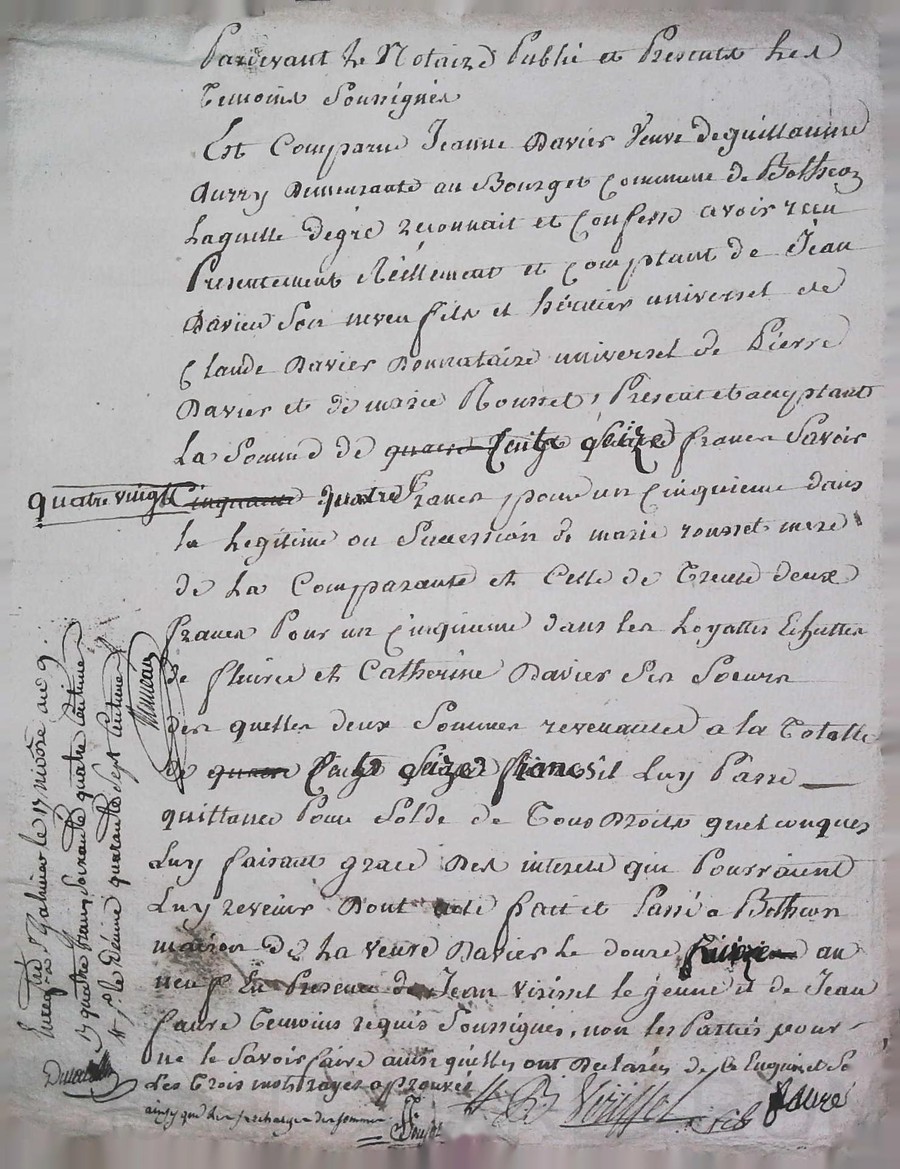 Pardevant Le Notaire Public et Presents Les
Temoins Soussignés
Est Comparue Jeanne Davier Veuve de guillaume
aurry Demeurante au Bourget Commune de Botheon
Laquelle de gré reconnait et Confesse avoir recu
Presentement Réellement et comptant de Jean
Davier Son neveu fils et héritier universel de
Claude Davier Donnataire universel de Pierre
Davier et de marie Rousset, Présent et acceptant
La Somme de quatre Cents Seize francs Savoir
quatre vingt cinquante quatre francs pour un Cinquieme dans
la Legitime ou Succession de marie rousset mere
de La Comparante et Celle de Trente deux
francs Pour un Cinquieme dans les Loyattes Echuttes
de fleurie et Catherine Davier Ses Soeurs
des quelles deux Sommes revenantes a la Totalle
de Cents Seize francs il Luy Passe
quittance Pour Solde de Tous Droits quelconques
Luy faisant grace Des interets qui Pourraient
Luy revenir Dont acte fait et Passé a Botheon
maison de La veuve Davier Le douze an
neuf En Presence de Jean Virissel le jeune et de Jean
faure Temoins requis Soussignés, non les Parties pour
ne le Savoir faire ainsi qu'elles ont Déclarés de ce Enquis et So
Les Trois mots rayés approuvés
ainsy que les surcharges des sommes
JB Virissel
faure
Enregistré a St Galmier le 17 nivose an 9
quatre francs soixante quatre Centimes
le Décime quarante Sept Centimes